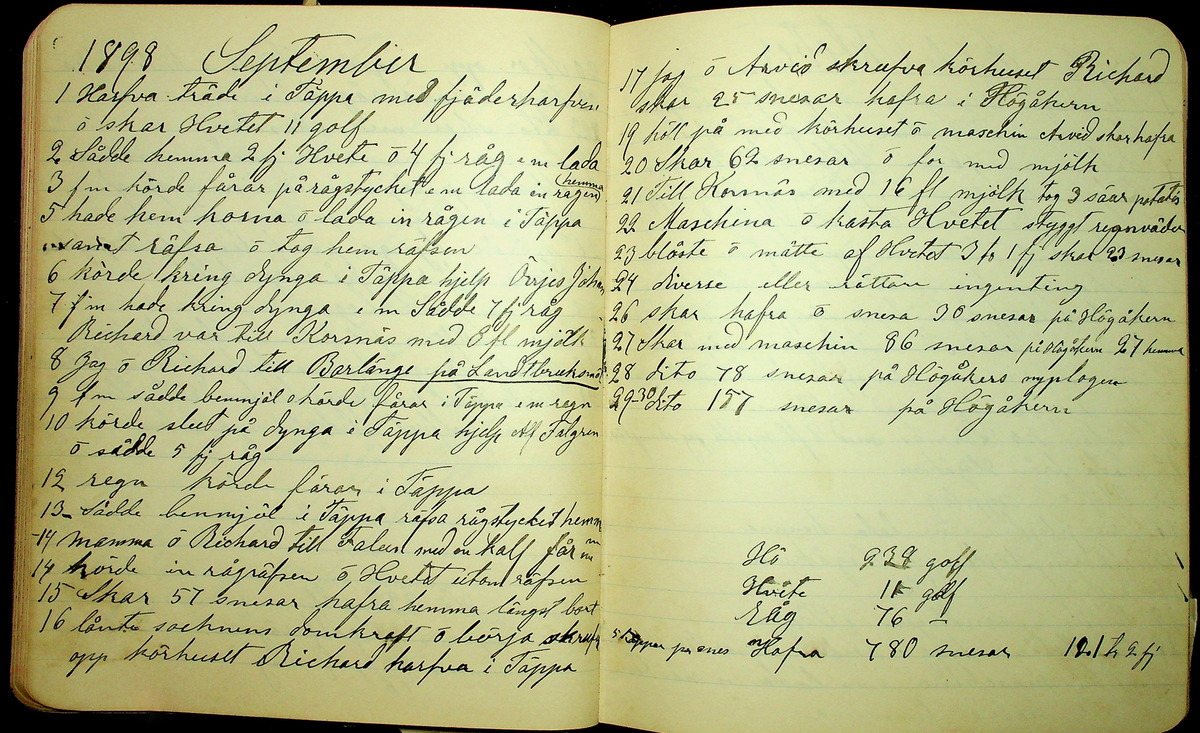 1898 September
1 Harfva träde i Täppa med fjäderharfven
ö skar Hvetet 11 golf
2 Sådde hemma 2 fj Hvete ö 4 fj råg em lada
3 fm körde fårar på rågstycket em lada in rågen hemma
5 hade hem korna ö lada in rågen i Täppa
samt räfsa ö tog hem räfsen
6 körde kring dynga i Täppa hjelp Johan
7 fm hade kring dynga em Sådde 7 fj råg
Richard var till Kornäs med 8 fl mjölk
8 Jag ö Richard till Barlänge på Landtbruksmöt
9 fm sådde benmjöl o körde fårar i Täppa em regn
10 körde slut på dynga i Täppa hjelp Alf Falgren
ö sådde 5 fj råg
12 regn körde fårar i Täppa
13 Sådde benmjöl i Täppa räfsa rågstycket hemma
14 mamma ö Richard till Falun med en kalf
14 körde in rågräfsen ö Hvetet utom räfsen
15 Skar 57 snesar hafra hemma längst bort
16 lånte socknens domkraft ö börja skrufva
opp körhuset Richard harfva i Täppa
17 jag ö Arvid skrufva körhuset Richard
skar 25 snesar hafra i Högåkern
19 höll på med körhuset ö maschin Arvid skar hafra
20 Skar 62 snesar ö for med mjölk
21 Till Kornäs med 16 fl mjölk tog 3 säar potatis
22 Maschina ö kasta Hvetet styggt regnväder
23 blåste ö mätte af Hvetet 3 t 1 fj skar 23 snesar
24 diverse eller rättare ingenting
26 skar hafra ö snesa 30 snesar på Högåkern
27 Skar med maschin 86 snesar på Högåkern 27 hemma
28 dito 78 snesar på Högåkers nyplogen
29-30 dito 157 snesar på Högåkern
Hö 939 golf
Hvete 11 golf
Råg 76 —
5 kappar pr snes Hafra 780 snesar 121 t 2 fj